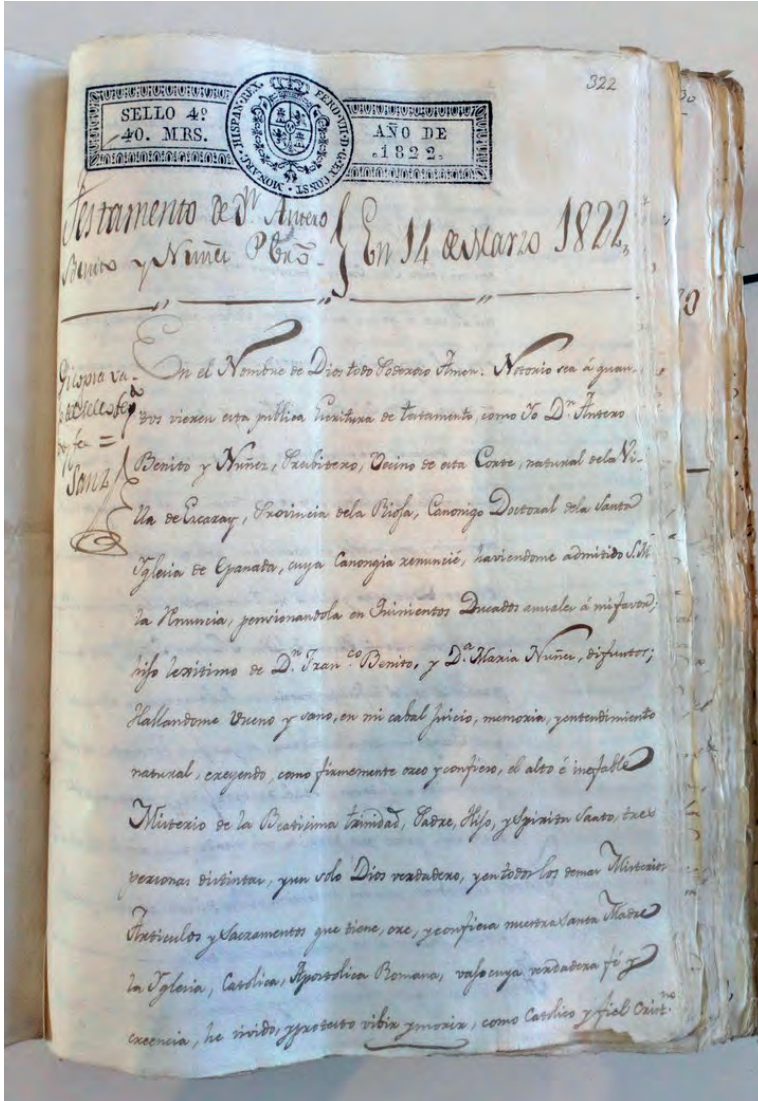 322
SELLO 4º
40. MRS.
HISPAN. REX. FERD. VII. D. G. ET CONST. MONARC.
AÑO DE
.1822.
Testamento de Dn. Antero
Benito y Nuñez Pbrô.
En 14 de Marzo 1822,
dofee =
Sanz
En el Nombre de Dios todo Poderoso Amen. Notorio sea á quan-
tos vieren esta publica Escritura de testamento, como Yo Dn. Antero
Benito y Nuñez, Presbitero, Vecino de esta Corte, natural dela Vi-
lla de Ezcaray, Provincia dela Rioja, Canonigo Doctoral dela Santa
Yglesia de Granada, cuya Canongia renuncié, haviendome admitido S.M
la Rnuncia, pensionandola en Quinientos Ducados anuales á mi favor;
hijo lexitimo de Dn. Franco. Benito, y Da. Maria Nuñez, difuntos;
Hallandome bueno y sano, en mi cabal juicio, memoria, y entendimiento
natural, creyendo, como firmemente creo y confieso, el alto é inefable
Misterio de la Beatisima trinidad, Padre, Hijo, y Spiritu Santo, tres
personas distintas, y un solo Dios verdadero, y en todos los demas Misterios
Articulos y Sacramentos que tiene, cree, y confiesa nuestra Santa Madre
la Yglesia, Catolica, Apostolica Romana, vajo cuya verdadera fé y
creencia, he vivido, y protesto vibir y morir, como Catolico y fiel Cristno.